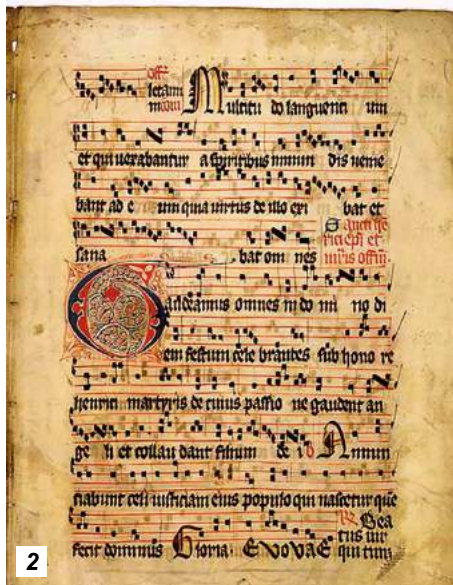 Multitu do languenti um
et qui uexabantur a spiritibus inmun dis uenie
bant ad e um quia uirtus de illo exi bat et
sana bat om nes
Gaudeamus omnes in do mi no di
em festum cele brantes sub hono re
henrici martyris de cuius passio ne gaudent an
ge li et collau dant filium de i Annun
ciabunt celi iusticiam eius populo qui nascetur que
Bea
tus uir
fecit dominus Gloria. Evovae qui tim
2